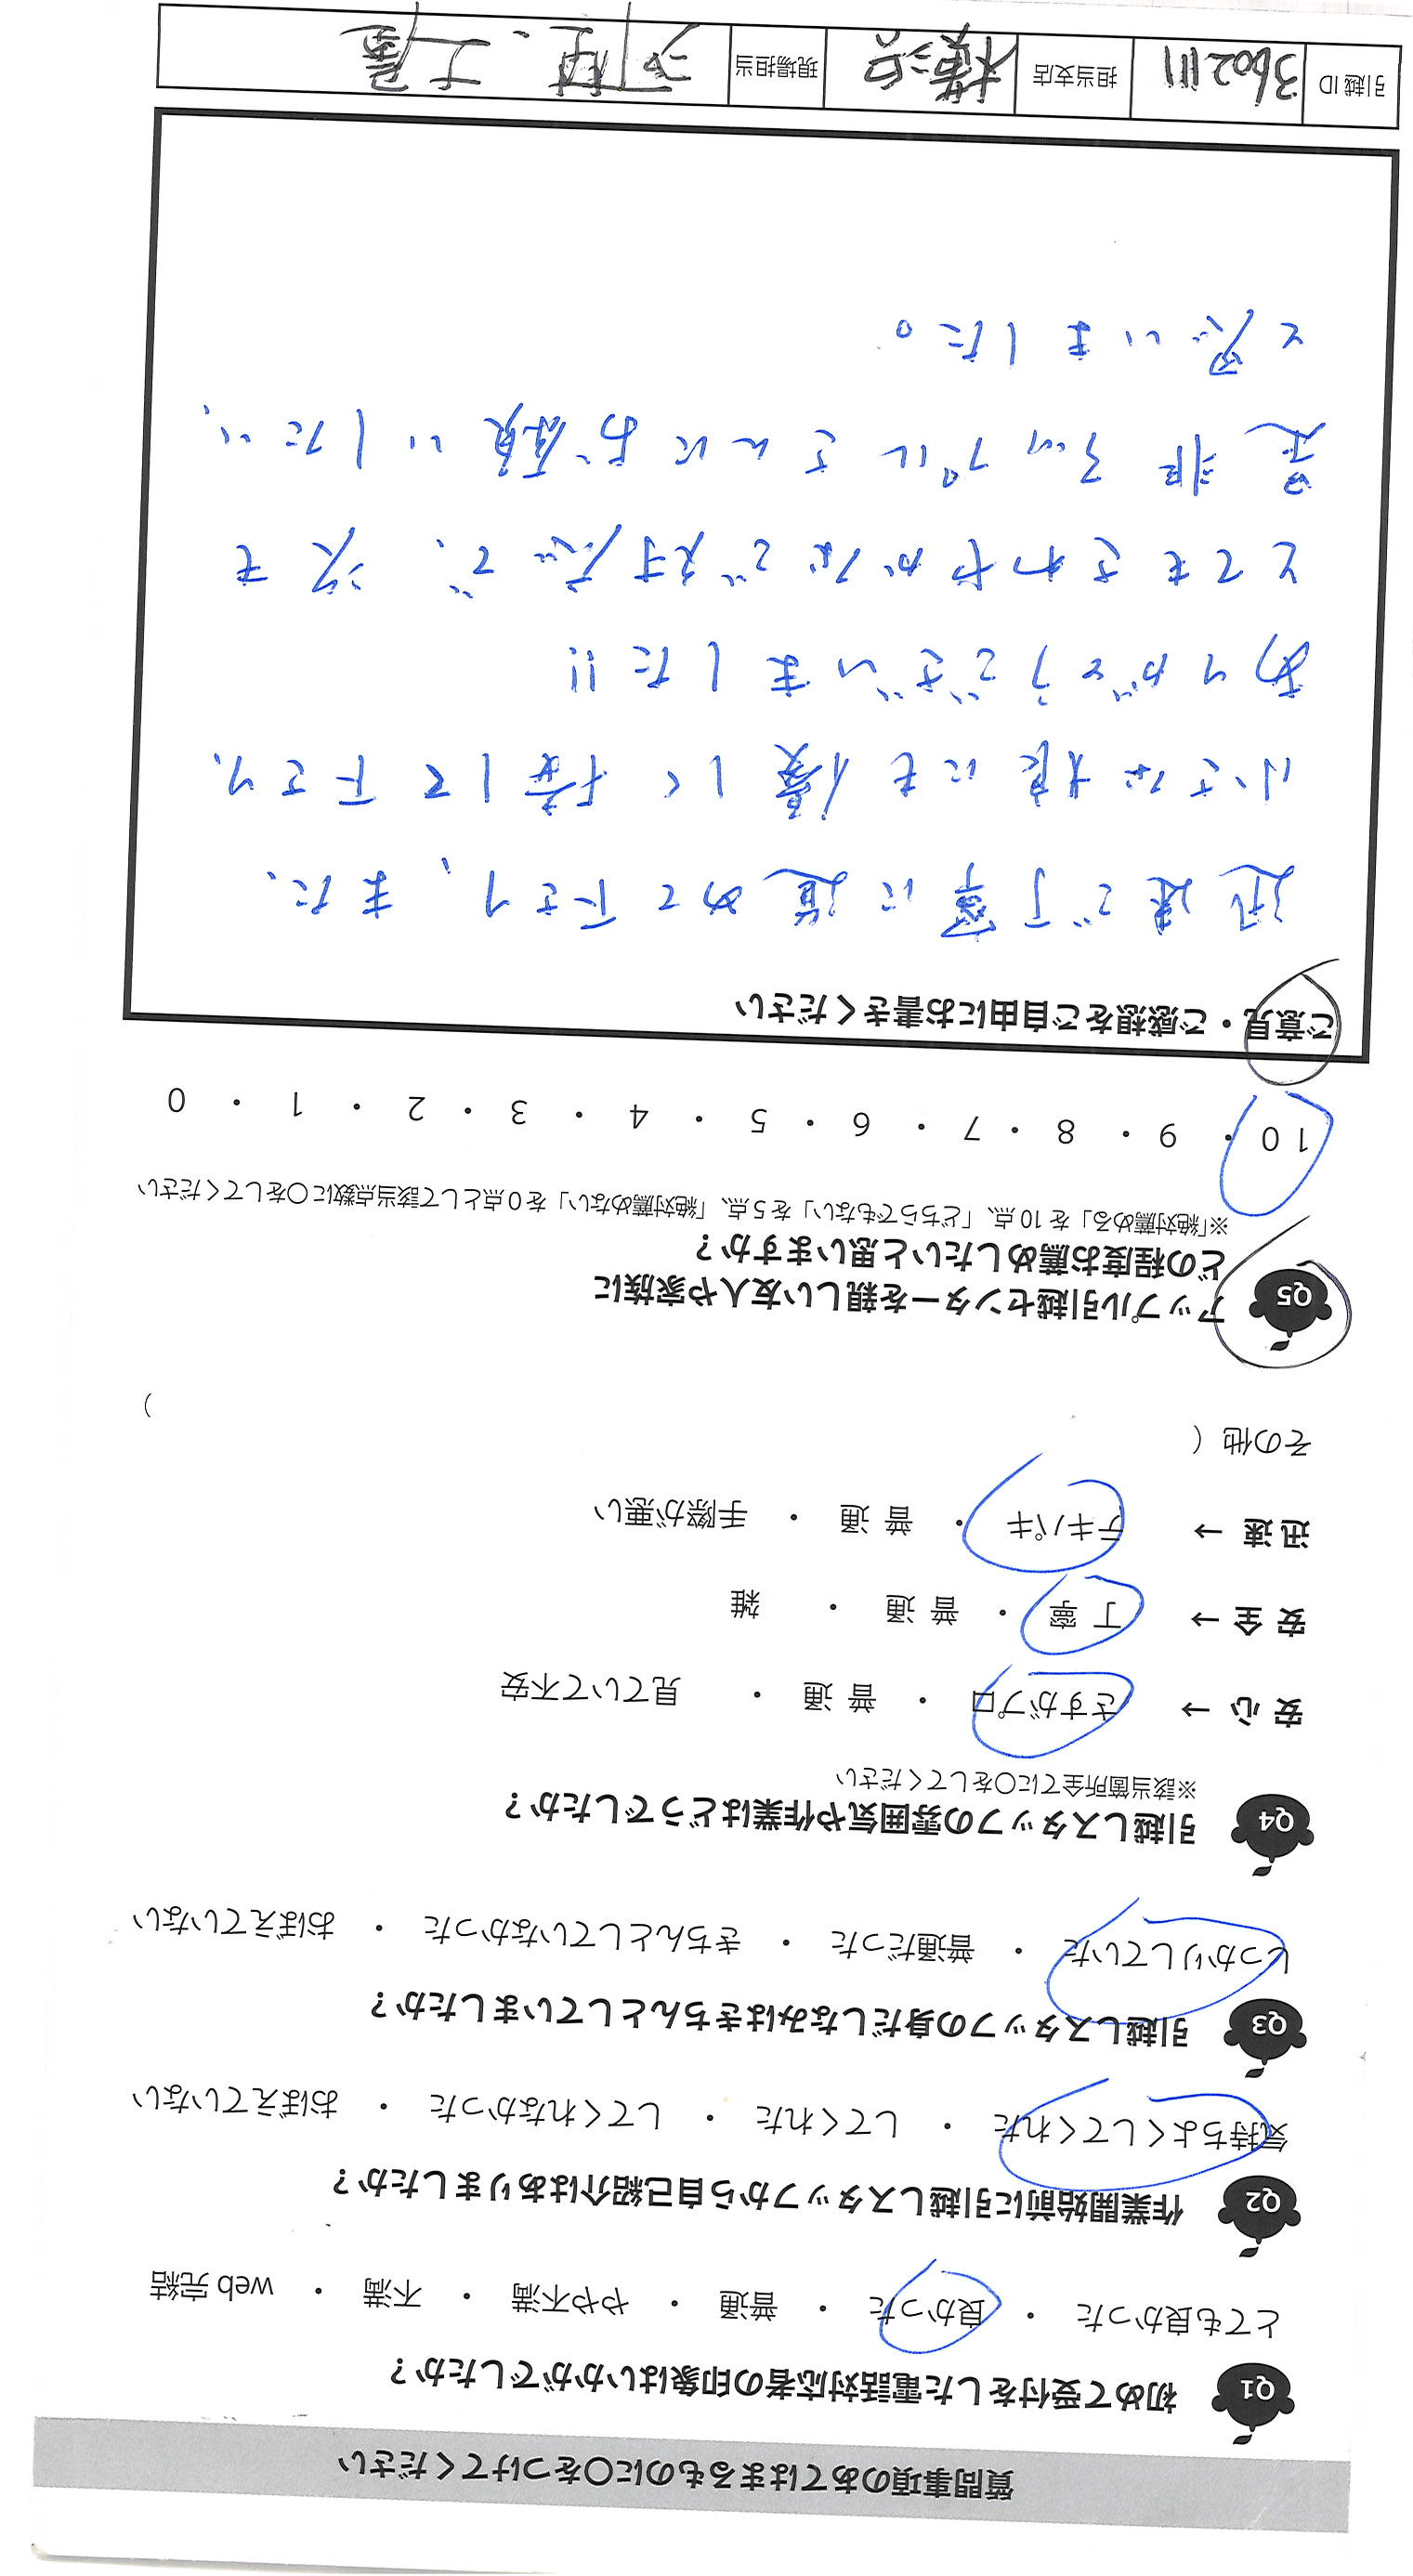 質問事項のあてはまるものに〇をつけてください
Q1 初めて受付をした電話対応者の印象はいかがでしたか？
とても良かった ・ 良かった ・ 普通 ・ やや不満 ・ 不満 ・ web 完結
Q2 作業開始前に引越しスタッフから自己紹介はありましたか？
気持ちよくしてくれた ・ してくれた ・ してくれなかった ・ おぼえていない
Q3 引越しスタッフの身だしなみはきちんとしていましたか？
しっかりしていた ・ 普通だった ・ きちんとしていなかった ・ おぼえていない
Q4 引越しスタッフの雰囲気や作業はどうでしたか？
※該当箇所全てに〇をしてください
安 心 → さすがプロ ・ 普 通 ・ 見ていて不安
安 全 → 丁 寧 ・ 普 通 ・ 雑
迅 速 → テキパキ ・ 普 通 ・ 手際が悪い
その他（ ）
Q5 アップル引越センターを親しい友人や家族に
どの程度お薦めしたいと思いますか？
※「絶対薦める」を 10 点、「どちらでもない」を 5 点、「絶対薦めない」を 0 点として該当点数に〇をしてください
10 ・ 9 ・ 8 ・ 7 ・ 6 ・ 5 ・ 4 ・ 3 ・ 2 ・ 1 ・ 0
ご意見・ご感想をご自由にお書きください
迅速で丁寧に進めて下さり、また、
小さな娘にも優しく接して下さり、
ありがとうございました!!
とてもさわやかなご対応で、次も
是非アップルさんにお願いしたい、
と思いました。
引越 ID 3602111 担当支店 横浜 現場担当